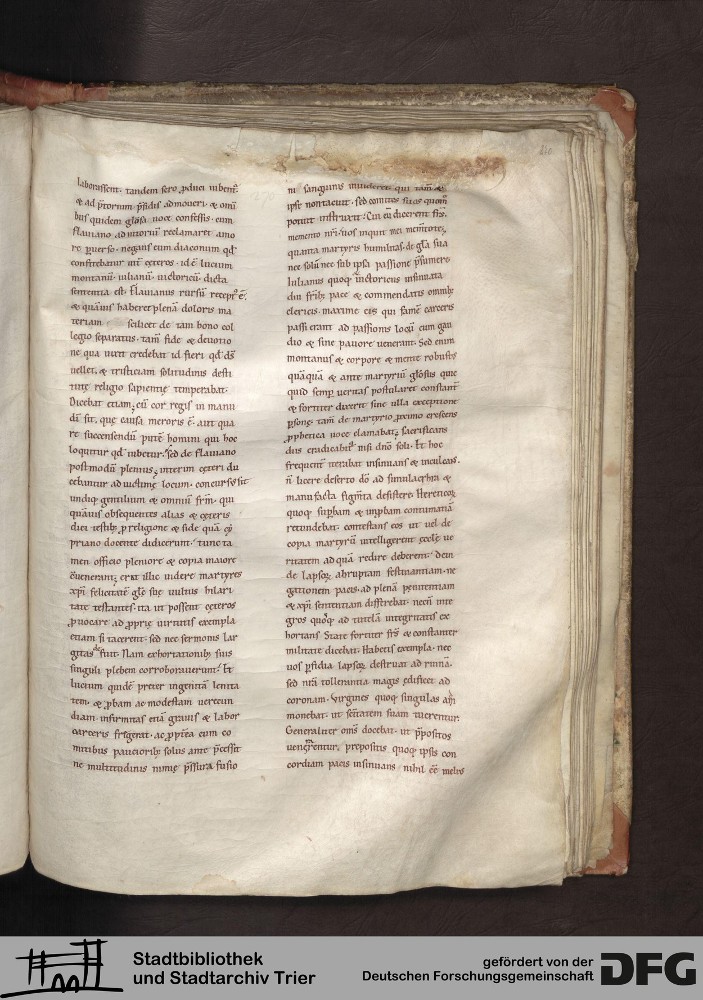 laborassent. tandem sero ꝓduci iubent᷑
& ad p̄torium p̄sidis admoueri. & omi
bus quidem gl̄osa uoce confessis. cum
flauiano aduitoriū reclamaret amo
re ꝑuerso. negans eum diaconum qd̛
confitebatur
montanū. iulianū. uictoricū. dicta
sententia est. flauianus rursū recept᷒ ē.
& quāuis haberet plenā doloris ma
teriam scilicet de tam bono col
legio separatus. tam̄ fide & deuotio
ne qua uixit credebat id fieri qd̛ ds̄
uellet. & tristiciam solitudinis desti
tutę religio sapientię temperabat.
Dicebat etiam; cū cor regis in manu
dī sit. quę causa meroris ē. aut qua
re succensendū putē homini qui hoc
loquitur qd̛ iubetur. Sed de flauiano
postmodū plenius; interim ceteri du
cebantur ad uictimę locum. concursus fit
undiq; gentilium & omniū frm̄. qui
quāuis obsequentes alias & ceteris
dei testib; ꝓ religione & fide quā cy
priano docente didicerunt. tunc ta
men officio pleniore & copia maiore
c̄uenerant; erat illic uidere martyres
xp̄i felicitatē gl̄e suę uultus hilari
tate testantes. ita ut possent ceteros
ꝓuocare ad ꝓprię uirtutis exempla
etiam si tacerent. sed nec sermonis lar
gitas defuit. Nam exhortationib; suis
singuli plebem corroborauerunt. Et
lucium quidē preter ingenitā lenita
tem. & ꝓbam ac modestam uerecun
diam. infirmitas etiā grauis & labor
carceris fregerat. ac ꝓpterea cum co
mitibus paucioribꝫ solus ante p̄cessit
ne multitudinis nimię p̄ssura fuso
ni sanguinis inuideret. qui tam̄ &
ipse non tacuit. sed comites suos quom̄
potuit instruxit. Cui cū dicerent frs̄.
memento nr̄i. uos inquit mei mementote;
quanta martyris humilitas. de gl̄a sua
nec solū nec sub ipsa passione p̄sumere
Iulianus quoq; & uictoricus insinuata
diu frib; pace & commendatis omnib;
clericis. maxime eis qui famē carceris
passi erant. ad passionis locū cum gau
dio & sine pauore uenerunt. Sed enim
montanus & corpore & mente robustus
quāquā & ante martyriū gl̄osus quic
quid semꝑ ueritas postularet constant̄
& fortiter dixerit sine ulla exceptione
ꝑsonę. tam̄ de martyrio ꝓximo crescens
ꝓphetica uoce clamabat; sacrificans
diis eradicabit᷑ nisi dn̄o soli. Et hoc
frequent̄ iterabat insinuans & inculcans.
n̄ licere deserto dō ad simulachra &
manufacta figm̄ta desistere. Hereticoꝝ
quoq; suꝑbam & impbam contumaciā
retundebat. contestans eos ut uel de
copia martyrū intelligerent ęcclę ue
ritatem ad quā redire deberent. dein
de lapsoꝝ abruptam festinantiam. ne
gationem pacis. ad plenā penitentiam
& xp̄i sententiam differebat. necn̄ inte
gros quoq; ad tutelā integritatis ex
hortans. State fortiter frs̄ & constanter
militate dicebat. Habetis exempla. nec
uos ꝑfidia lapsoꝝ destruat ad ruinā.
sed nr̄a tollerantia magis ędificet ad
coronam. uirgines quoq; singulas am̄
monebat. ut sc̄itatem suam tuerentur.
Generaliter oms̄ docebat. ut p̄positos
uenerentur. prepositis quoq; ipsis con
cordiam pacis insinuans. nihil eē melius
Stadtbibliothek
und Stadtarchiv Trier
gefördert von der
Deutschen Forschungsgemeinschaft
DFG